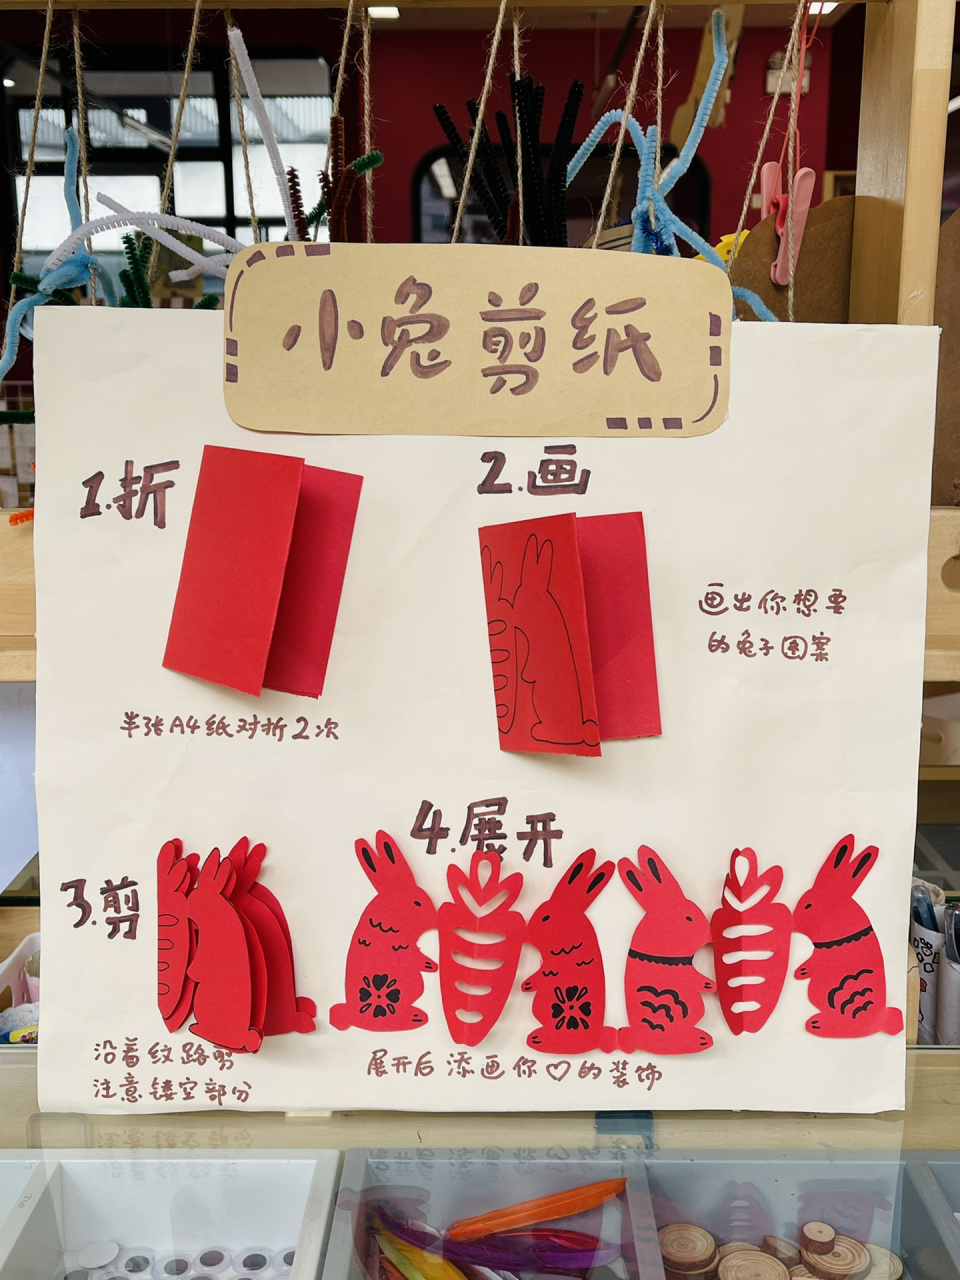 小兔剪纸
1.折
半张A4纸对折2次
2.画
画出你想要
的兔子图案
3.剪
沿着纹路剪
注意镂空部分
4.展开
展开后添画你♡的装饰